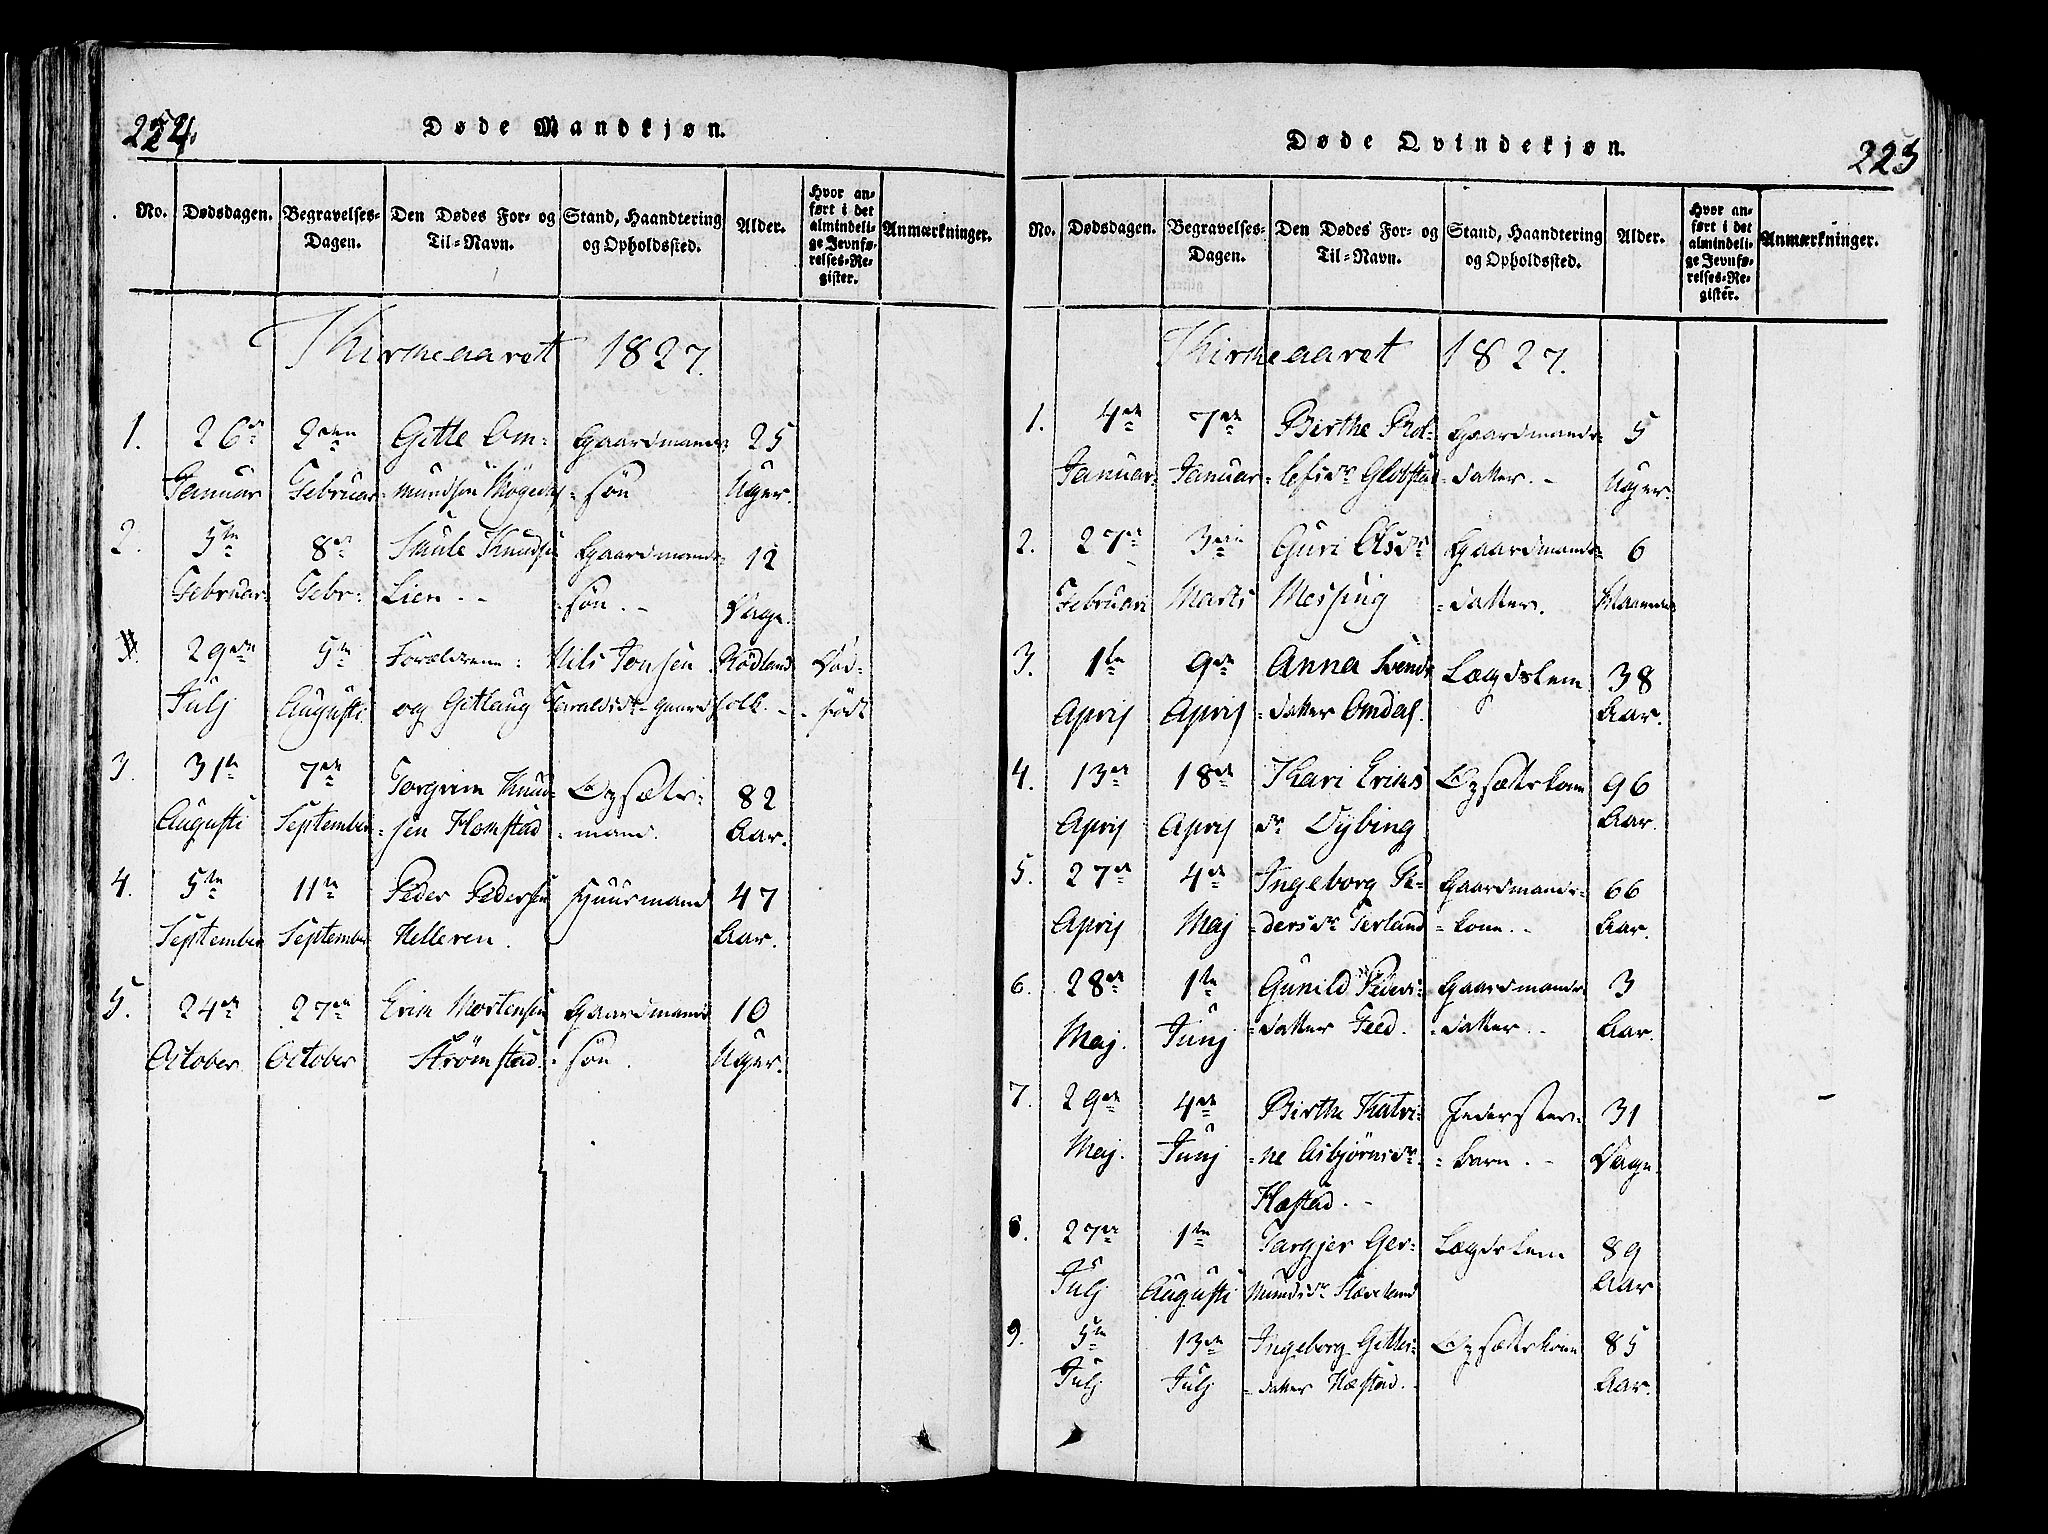 224.
Døde Mandkjøn.
No. Dødsdagen. Begravelses-Dagen. Den Dødes For- og Til-Navn. Stand, Haandtering og Opholdssted. Alder. Hvor anført i det almindelige Jevnførelses-Register. Anmærkninger.
Kirkeaaret 1827.
1. 26de 2den Gitte Om- Gaardmands- 25
Januar Februar -mundsen - søn Uger.
2. 5te 8de Saule Knudsen Gaardmands- 12
Februar Febr: Lien. - - søn. - Dage.
3. 29de 5te Forældrene: Nils Tonsen Rødland Død-
Julj Augusti og Gitlaug Taraldsdr gaardfolk. - - født
3. 31te 7de Torgrim Knud- Opsætr- 82
Augusti September -sen Flomstad - mand. Aar.
4. 5te 11te Peder Pedersen Huusmand 47
September September Helleren. Aar.
5. 24de 27de Erik Mortensen Gaardmands 10
October October Strømstad. - søn. Uger.
Døde Qvindekjøn.
225
No. Dødsdagen. Begravelses-Dagen. Den Dødes For- og Til-Navn. Stand, Haandtering og Opholdssted. Alder. Hvor anført i det almindelige Jevnførelses-Register. Anmærkninger.
Kirkeaaret 1827.
1. 4de 7de Birthe Rol- Gaardmands- 5
Januar Januar -lefsdr Globstad - datter. - Uger.
2. 27de 3die Guri Olsdr Gaardmands- 6
Februari Marts Messing - datter. Maaneder
3. 1te 9de Anna Svends Lægdslem 38
Aprij Aprij - datter Omdal. Aar.
4. 13de 18de Kari Eriks Opsætrskone 96
Aprij Aprij dr Dybing Aar.
5. 27de 4de Ingeborg Pe- Gaardmands- 66
Aprij Maj -dersdr Terland - kone. - Aar.
6. 28de 1te Gunild Peders- Gaardmands 3
Maj. Junj - datter Feed. - datter. - Aar.
7. 29de 4de Birthe Katri- 31
Maj. Junj -ne Asbjørnsdr - barn. - Dage
Hæstad. -
8. 27de 1te Targjer Ger- Lægdslem 89
Julj Augusti mundsdr Aar
9. 5te 13de Ingeborg Gittes- Opsætrskone 85
Julj Julj - datter Hæstad. Aar.